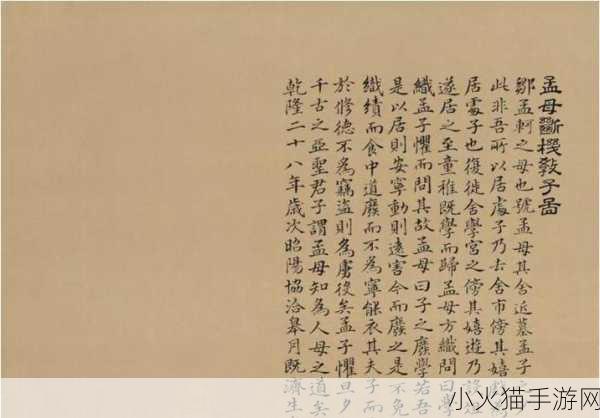 孟母斷機敎子啚
鄒孟軻之母也號孟母其舍近墓孟子之
此非吾所以居處子乃去舍市傍其嬉戲
居處子也復徙舍學宮之傍其嬉遊乃設
遂居之至童稚既學而歸孟母方織問曰學
織孟子懼而問其故孟母曰子之廢學若吾
是以居則安寧動則遠害今而廢之是不免
織績而食中道廢而不為寧能衣其夫子而
於修德不為竊盜則為虜役矣孟子懼旦夕
千古之亞聖君子謂孟母知為人母之道矣
乾隆二十八年歲次昭陽協洽皋月既濟生
小火猫手游网